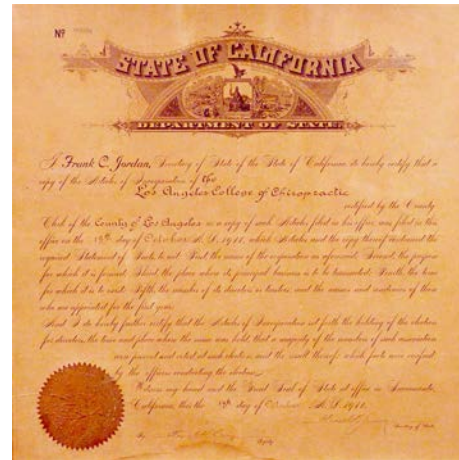 Nº
STATE OF CALIFORNIA
DEPARTMENT OF STATE
I Frank C. Jordan, Secretary of State of the State of California do hereby certify that a
copy of the Articles of Incorporation of the
Los Angeles College of Chiropractic
certified by the County
Clerk of the County of Los Angeles as a copy of such Articles filed in his office was filed in this
office on the day of October A. D. 1911, which Articles and the copy thereof contained the
required Statement of Facts to wit: First the name of the corporation as aforesaid; Second, the purpose
for which it is formed; Third the place where its principal business is to be transacted; Fourth the term
for which it is to exist; Fifth the number of its directors or trustees and the names and residences of those
who are appointed for the first year.
And I do hereby further certify that the Articles of Incorporation set forth the holding of the election
for directors, the time and place where the same was held, that a majority of the members of such association
were present and voted at such election, and the result thereof, which facts were verified
by the officers conducting the election.
Witness my hand and the Great Seal of State at office in Sacramento,
California, this the day of October A. D. 1911.
Secretary of State
By
Deputy